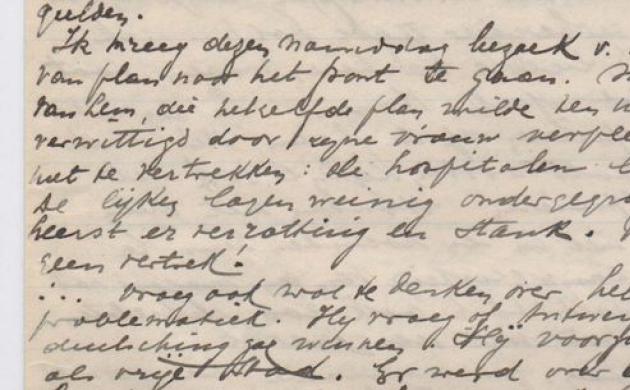 gulden.
Ik kreeg dezen namiddag bezoek v.
van plan naar het front te gaan.
van hem, die hetzelfde plan wilde ten
verwittigd door zijne vrouw
niet te vertrekken: de hospitalen
De lijken lagen weinig
heerst er verrotting en stank.
geen vertrek!
... vroeg ook wat te denken over het
problematiek. Hij vroeg of Antwerpen
Hij
als vrije stad. Er werd over